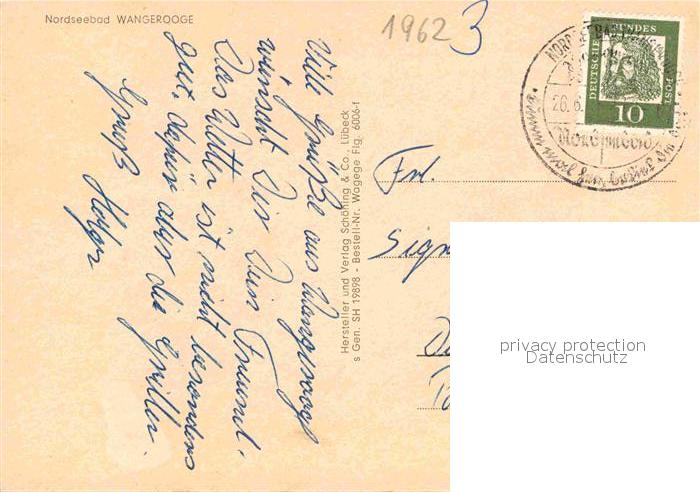 Nordseebad WANGEROOGE
1962
3
Viele Grüße aus Wangerooge
wünscht Dir Dein Freund.
Das Wetter ist nicht besonders
gut, dafür aber die
Gruß Holger
Hersteller und Verlag Schöning & Co., Lübeck
s Gen. SH 19898 - Bestell-Nr. Wagege Flg. 6006-f
DEUTSCHE BUNDES POST
10
26.6.
Frl.
Sign
privacy protection
Datenschutz